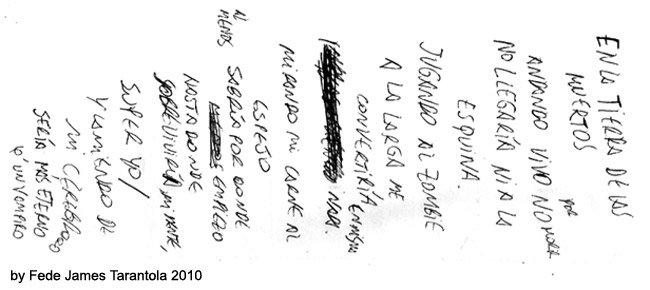 EN LA TIERRA DE LOS
MUERTOS
ANDANDO VIVO NO
POR
NO LLEGARÍA NI A LA
ESQUINA.
JUGANDO AL ZOMBIE
A LA LARGA ME
CONVERTIRÍA EN
MIRANDO MI CARNE AL
ESPEJO
AL MENOS SABRÍA POR DONDE
EMPIEZO
HASTA DONDE
SOBREVIVIRÍA MI MENTE,
SUPER YO/
Y LAMIENDO DE
MI CEREBRO
SERÍA MAS ETERNO
Q' UN VAMPIRO
by Fede James Tarantola 2010